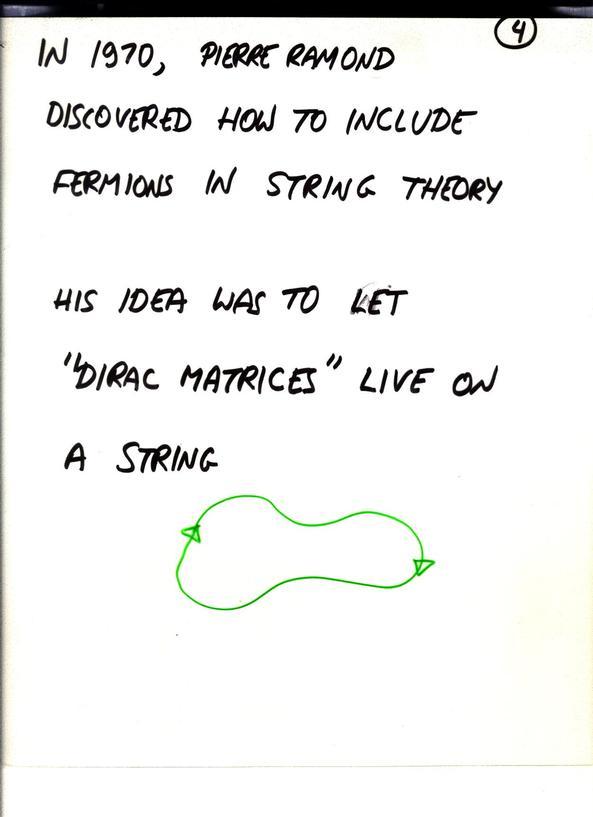 4
IN 1970, PIERRE RAMOND
DISCOVERED HOW TO INCLUDE
FERMIONS IN STRING THEORY
HIS IDEA WAS TO LET
"DIRAC MATRICES" LIVE ON
A STRING